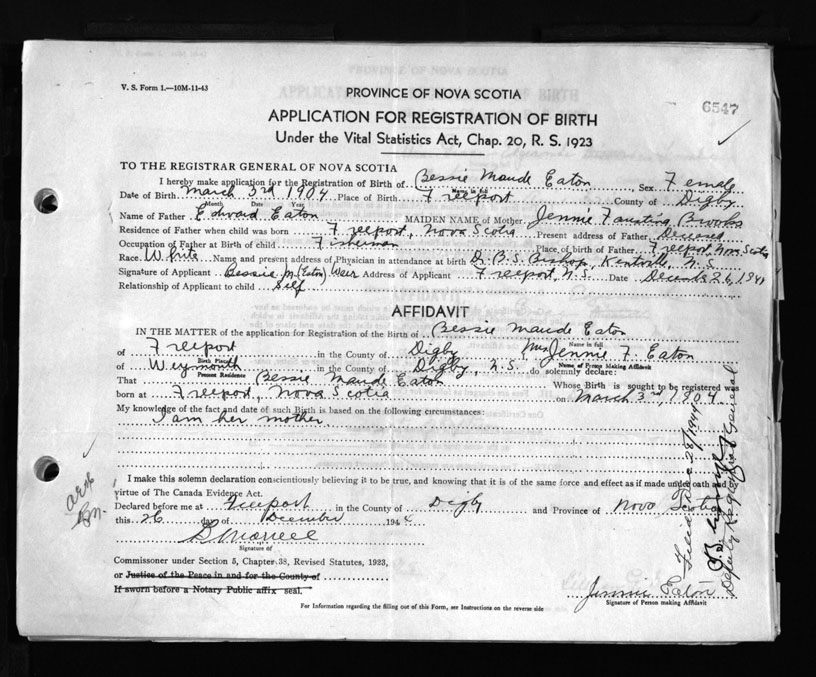 V. S. Form 1.—10M-11-43
PROVINCE OF NOVA SCOTIA
6547
APPLICATION FOR REGISTRATION OF BIRTH
Under the Vital Statistics Act, Chap. 20, R. S. 1923
TO THE REGISTRAR GENERAL OF NOVA SCOTIA
I hereby make application for the Registration of Birth of Bessie Maude Eaton Sex Female
Name in full
Date of Birth March 3rd 1904 Place of Birth Freeport County of Digby
Month Date Year
Name of Father Edward Eaton MAIDEN NAME of Mother Jennie Faustina Brooks
Residence of Father when child was born Freeport, Nova Scotia Present address of Father Deceased
Occupation of Father at Birth of child Fisherman Place of birth of Father Freeport, Nova Scotia
Race White Name and present address of Physician in attendance at birth Dr. B.S. Bishop, Kentville, N.S.
Signature of Applicant Bessie M (Eaton) Weir Address of Applicant Freeport, N.S. Date December 26, 1944
Relationship of Applicant to child Self
AFFIDAVIT
IN THE MATTER of the application for Registration of the Birth of Bessie Maude Eaton
Name in full
of Freeport in the County of Digby Mrs Jennie F. Eaton
Birth Place Name of Person Making Affidavit
of Weymouth in the County of Digby, N.S. do solemnly declare:
Present Residence
That Bessie Maude Eaton Whose Birth is sought to be registered was
born at Freeport, Nova Scotia on March 3rd 1904.
My knowledge of the fact and date of such Birth is based on the following circumstances:
I am her mother.
I make this solemn declaration conscientiously believing it to be true, and knowing that it is of the same force and effect as if made under oath and by
virtue of The Canada Evidence Act.
Declared before me at Freeport in the County of Digby and Province of Nova Scotia
this 26 day of December 1944
Signature of
Commissoner under Section 5, Chapter 38, Revised Statutes, 1923,
or Justice of the Peace in and for the County of
If sworn before a Notary Public affix seal.
Jennie Eaton
Signature of Person making Affidavit
For Information regarding the filling out of this Form, see Instructions on the reverse side
Filed Dec 28/1944
Deputy Registrar General